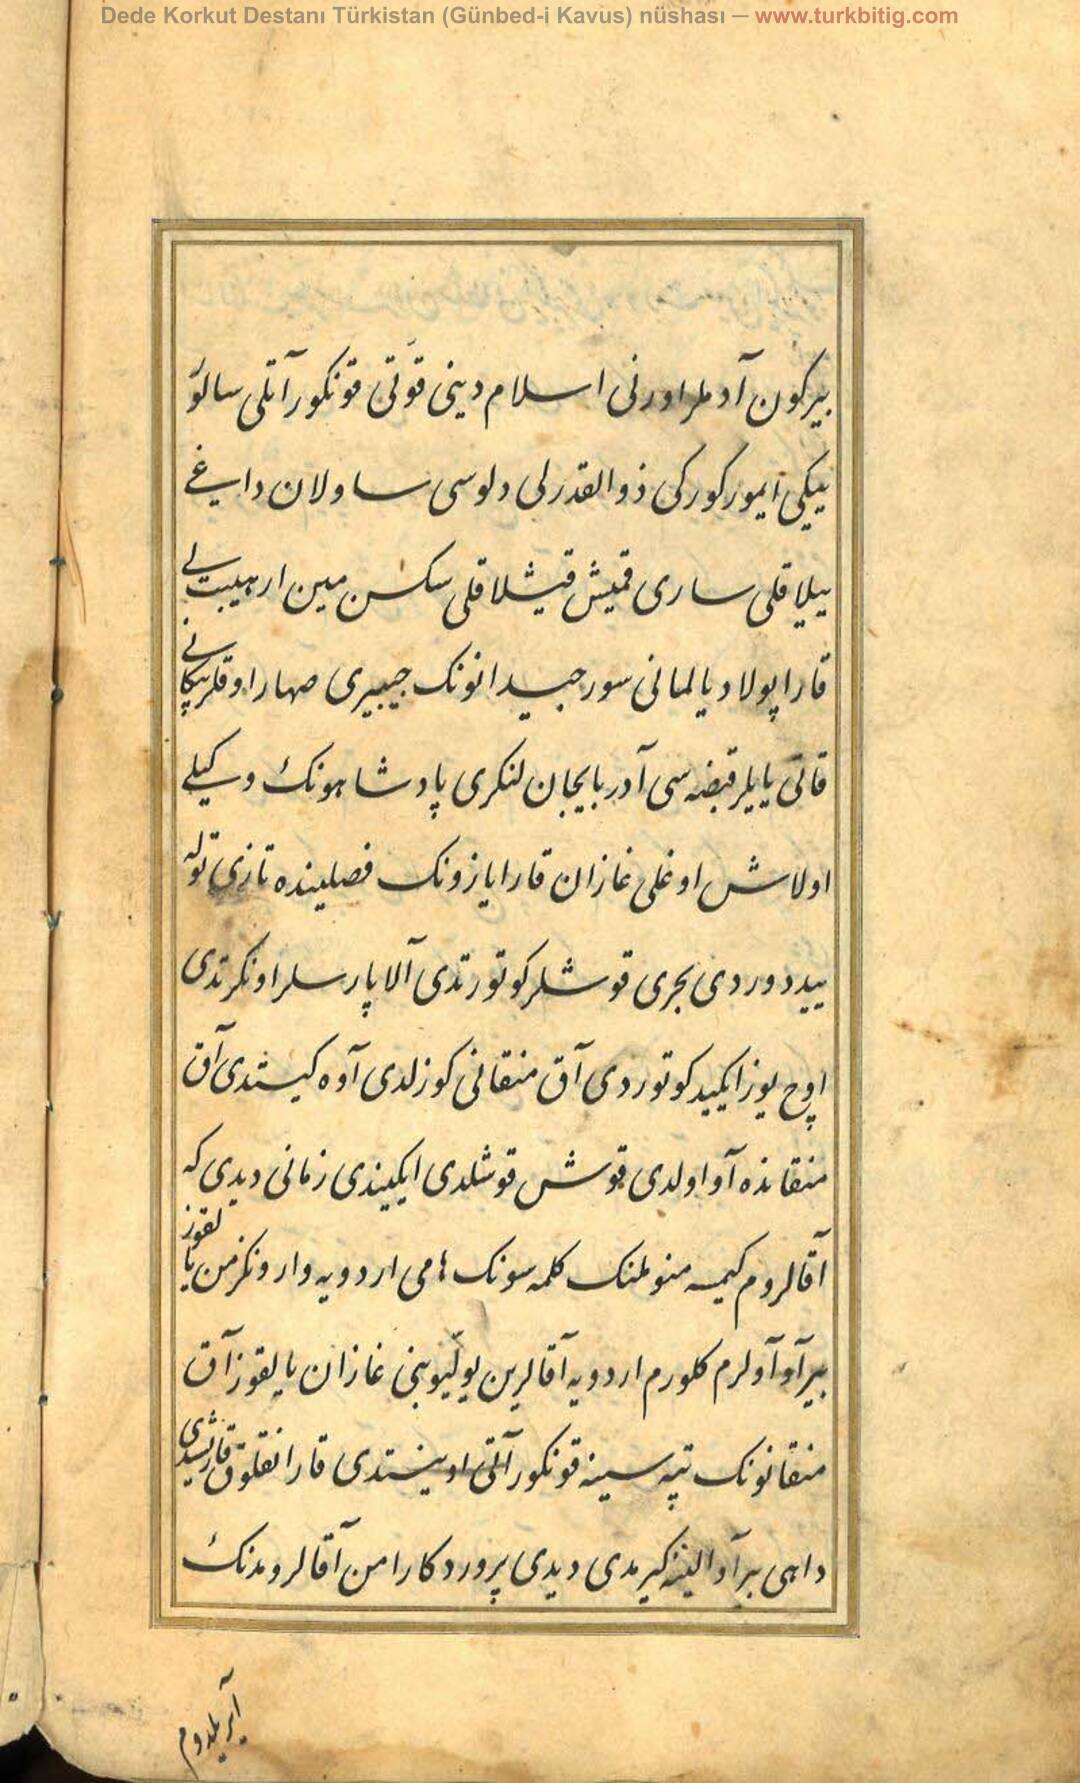 Dede Korkut Destanı Türkistan (Günbed-i Kavus) nüshası — www.turkbitig.com
بیر کون آدملر اورنی اسلام دینی قوّتی قونکور آتلی سالوٚ
بیکی ایمور کورکی ذوالقدرلی دلوسی ساولان داغی
ییلاقلی ساری قمیش قیشلاقلی سکسن مین ار هیبت لی
قارا پولاد یالمانی سور جیدانونک جیبیری صهار اوقلر پیکانی
قاتی یایلر قبضه سی آدربایجان لنکری پادشاهونک وکیلی
اولاش اوغلی غازان قارا یازونک فصلینده تازی توله
ییددوردی بحری قوشلر کوتورتدی آلا پارسلر اونکرتدی
اوچ یوز ایکید کوتوردی آق منقانی کوزلدی آوه کیتدی آق
منقانده آو اولدی قوش قوشلدی ایکیندی زمانی دیدی که
آقالروم کیمسه منوملنک کلمه سونک هامی اردویه وارونکز من یالقوز
بیر آو آولرم کلورم اردویه آقالرین یولّیوبنی غازان یالقوز آق
منقانونک تپه سینه قونکور آتی اوینتدی قارانقلوق قاریشدی
داهی بیر آو الینه کیرمدی دیدی پروردکارا من آقالرومدنک
آیریلدوم